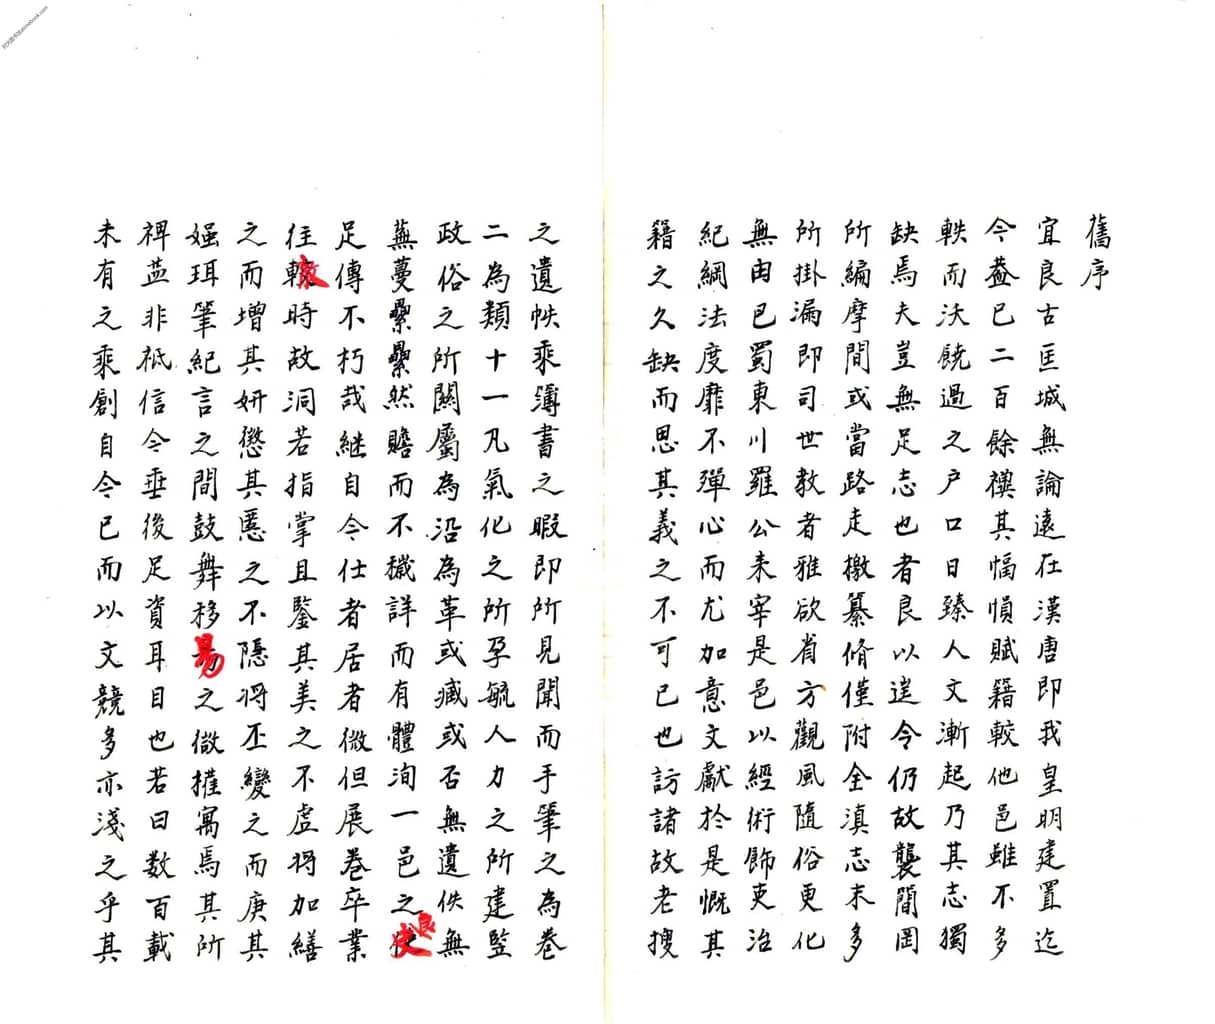 舊序
宜良古匡城無論遠在漢唐即我皇明建置迄
今蓋已二百餘禩其幅憤賦籍較他邑雖不多
軼而沃饒過之戶口日臻人文漸起乃其志獨
缺焉夫豈無足志也者良以逞令仍故襲簡罔
所編摩間或當路走檄纂脩僅附全滇志末多
所掛漏即司世教者雅欲省方觀風隨俗更化
無由已蜀東川羅公来宰是邑以經術飾吏治
紀綱法度靡不殫心而尤加意文獻於是慨其
籍之久缺而思其義之不可已也訪諸故老搜
之遺帙乘簿書之暇即所見聞而手筆之為卷
二為類十一凡氣化之所孕毓人力之所建監
政俗之所關屬為沿為革或臧或否無遺佚無
蕪蔓纍纍然贍而不穢詳而有體洵一邑之良史
足傳不朽哉継自今仕者居者微但展卷卒業
往轍時故洞若指掌且鑒其美之不虛将加繕
之而增其妍懲其慝之不隱将丕變之而庚其
媸珥筆紀言之間鼓舞移易之微㩁寓焉其所
裨益非祇信今垂後足資耳目也若曰数百載
未有之乘創自今已而以文競多亦淺之乎其